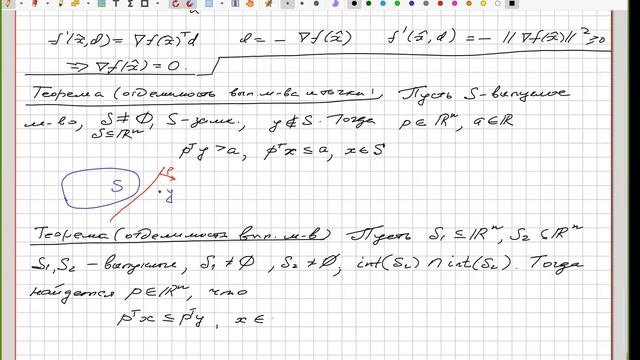 f'(x̂,d) = ∇f(x̂)ᵀd   d = − ∇f(x̂)   f'(x̂,d) = − ‖∇f(x̂)‖² ≥ 0
⇒ ∇f(x̂) = 0.
Теорема (отделимость вып. м-ва и точки), Пусть S-выпуклое
м-во, S ≠ ∅, S-замк., y ∉ S. Тогда p ∈ ℝⁿ, a ∈ ℝ
S ⊆ ℝⁿ
pᵀy > a, pᵀx ≤ a, x ∈ S
S
p
y
Теорема (отделимость вып. м-в) Пусть S₁ ⊆ ℝⁿ, S₂ ⊆ ℝⁿ
S₁, S₂ – выпуклые, S₁ ≠ ∅, S₂ ≠ ∅, int(S₁) ∩ int(S₂). Тогда
найдется p ∈ ℝⁿ, что
pᵀx ≤ pᵀy, x ∈